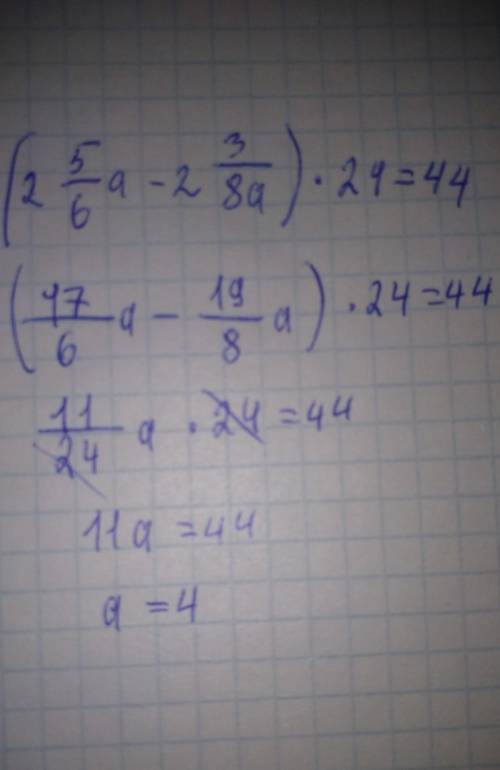 (2 5/6 a - 2 3/8a) · 24 = 44
(17/6 a - 19/8 a) · 24 = 44
11/24 a · 24 = 44
11a = 44
a = 4